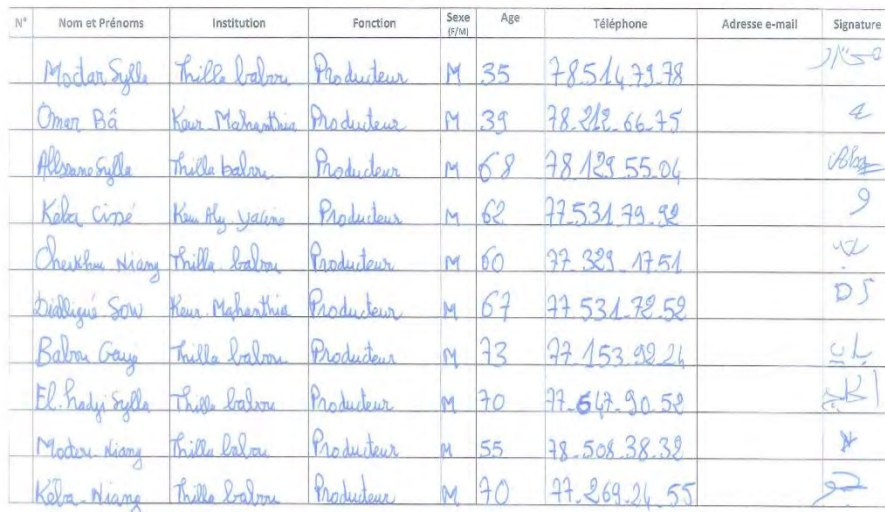 N° Nom et Prénoms Institution Fonction Sexe (F/M) Age Téléphone Adresse e-mail Signature
Modar Sylla Thilla babou Producteur M 35 78.514.79.78
Omar Bâ Keur Mahanthia Producteur M 39 78.212.66.75
Sylla Thilla babou Producteur M 68 78.129.55.04
Kéba Cissé Keur Aly yacine Producteur M 62 77.531.79.92
Cheikhou Niang Thilla babou Producteur M 60 77.329.17.51
Sow Keur Mahanthia Producteur M 67 77.531.72.52 DS
Babou Gaye Thilla babou Producteur M 73 77.153.92.24
El.hadji Sylla Thilla babou Producteur M 70 77.647.90.52
Modou Niang Thilla babou Producteur M 55 78.508.38.32
Kéba Niang Thilla babou Producteur M 70 77.269.24.55